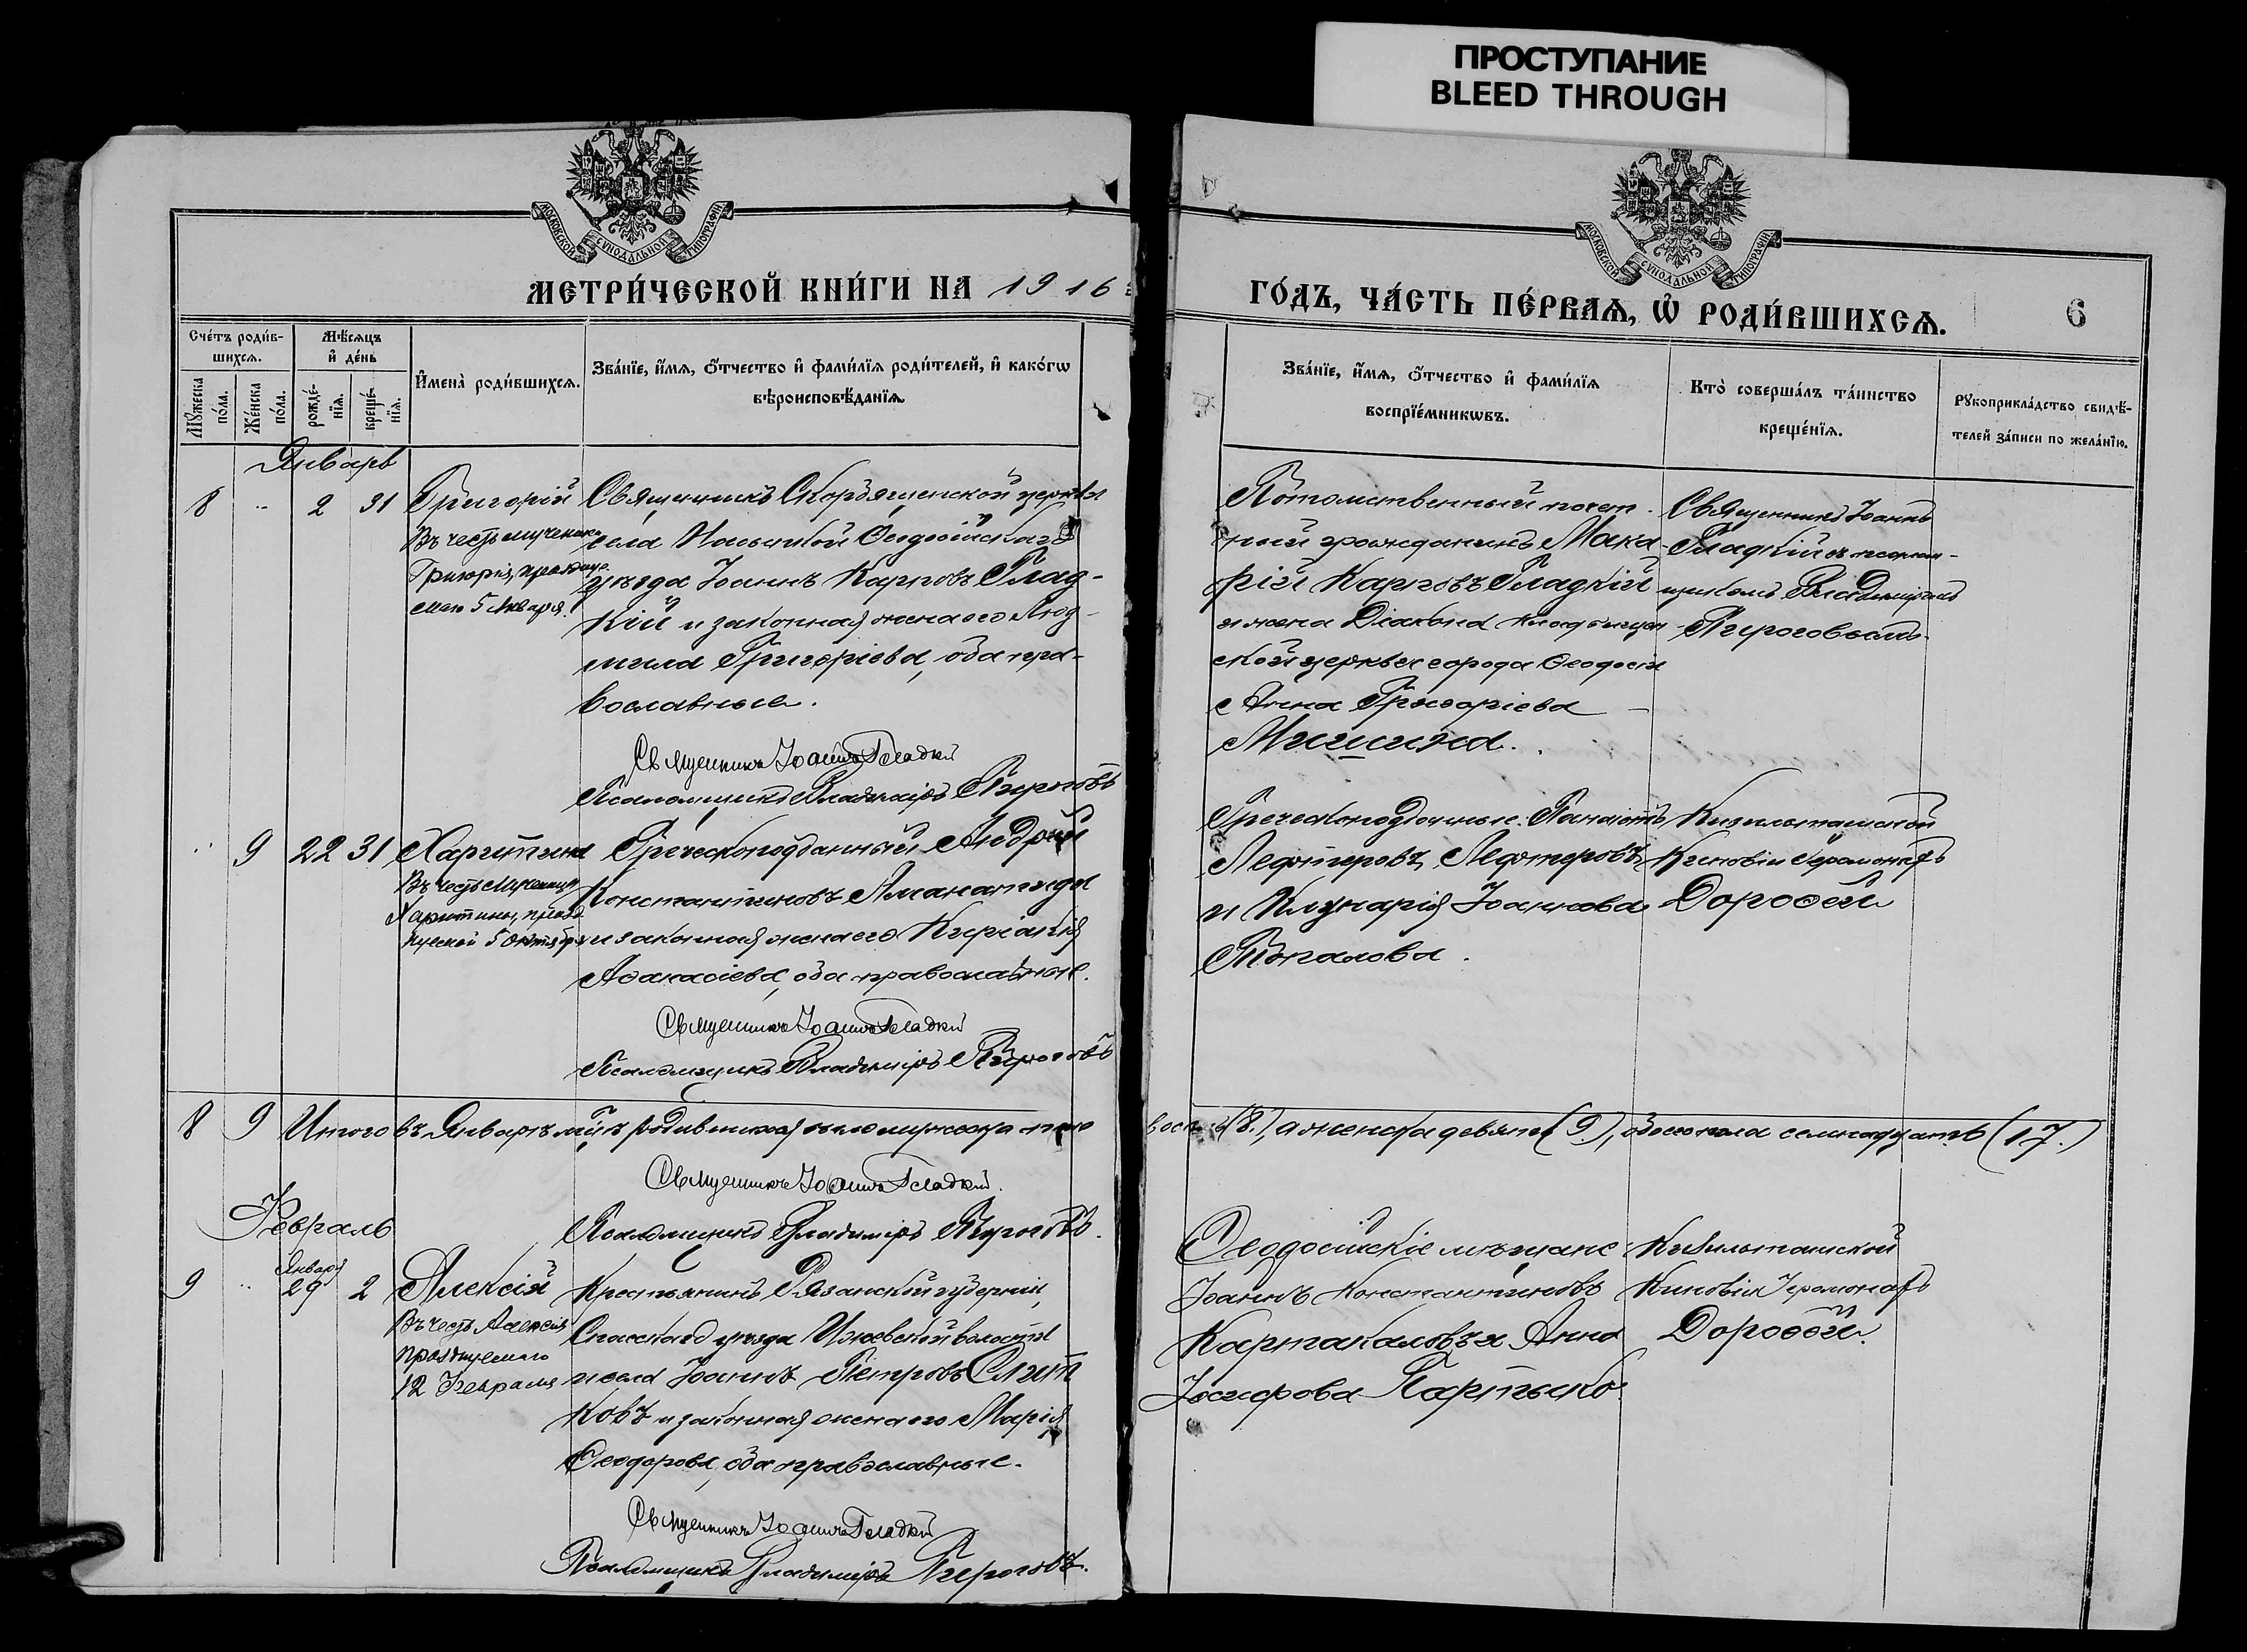 ПРОСТУПАНИЕ
BLEED THROUGH
МОСКОВСКОЙ СѴНОДАЛЬНОЙ ТИПОГРАФІИ
МОСКОВСКОЙ СѴНОДАЛЬНОЙ ТИПОГРАФІИ
МЕТРИ́ЧЕСКОЙ КНИ́ГИ НА 1916
ГО́ДЪ, ЧА́СТЬ ПЕ́РВАѦ, Ѡ҆ РОДИ́ВШИХСѦ.
6
Сче́тъ роди́в-
шихсѧ.
Мꙋ́жеска по́ла.
Же́нска по́ла.
Мѣ́сѧцъ
и҆ де́нь
рожде́-
нїѧ.
креще́-
нїѧ.
И҆мена̀ роди́вшихсѧ.
Зва́нїе, и҆́мѧ, ѻ҆́тчество и҆ фами́лїѧ роди́телей, и҆ како́гѡ
вѣроисповѣ́данїѧ.
Зва́нїе, и҆́мѧ, ѻ҆́тчество и҆ фами́лїѧ
воспрїе́мникѡвъ.
Кто̀ соверша́лъ та́инство
креще́нїѧ.
Рꙋкоприкла́дство свидѣ́-
телей за́писи по жела́нїю.
Январь
8 " 2 31
Григорій
Въ честь мученика
Григорія, праздну-
емаго 5 Января.
Священникъ Скорбященской церкви
села Насыпкой Ѳеодосійскаго
уѣзда Іоаннъ Карповъ Глад-
кій и законная жена его Люд-
мила Григоріева, оба пра-
вославные.
Священникъ Іоаннъ Гладкій
Псаломщикъ Владиміръ Пироговъ
Потомственный почет-
ный гражданинъ Мака-
рій Карповъ Гладкій
и жена Діакона Кладбищен-
ской церкви города Ѳеодосіи
Анна Григоріева
Мишина.
Священникъ Іоаннъ
Гладкій съ псалом-
щикомъ Владиміромъ
Пироговымъ
" 9 22 31
Харитина
Въ честь Мученицы
Харитины, празд-
нуемой 5 Октября
Греческоподданный Андрей
Константиновъ Аманатиди
и законная жена его Киріакія
Аѳанасіева, оба православные.
Священникъ Іоаннъ Гладкій
Псаломщикъ Владиміръ Пироговъ
Греческоподданные: Панаіотъ
Лефтеровъ Лефтеровъ
и Іоаннова
Топалова.
Кизильташской
Киновіи Іеромонахъ
Дороѳей
8 9 Итого въ Январѣ мѣс. родившихся было мужеска пола
восемь (8.), а женска девять (9.), обоего пола семнадцать (17.)
Священникъ Іоаннъ Гладкій.
Псаломщикъ Владиміръ Пироговъ.
Февраль
Января
9 " 29 2
Алексій
Въ честь Алексія
празднуемаго
12 Февраля
Крестьянинъ Рязанской губерніи,
Спасскаго уѣзда Ижевской волости
и села Іоаннъ Петровъ Слит
ковъ и законная жена его Марія
Ѳеодорова, оба православные.
Священникъ Іоаннъ Гладкій
Псаломщикъ Владиміръ Пироговъ.
Ѳеодосійскіе мѣщане:
Іоаннъ Константиновъ
Картакаловъ и Анна
Іосифова
Кизильташской
Киновіи Іеромонахъ
Дороѳей.